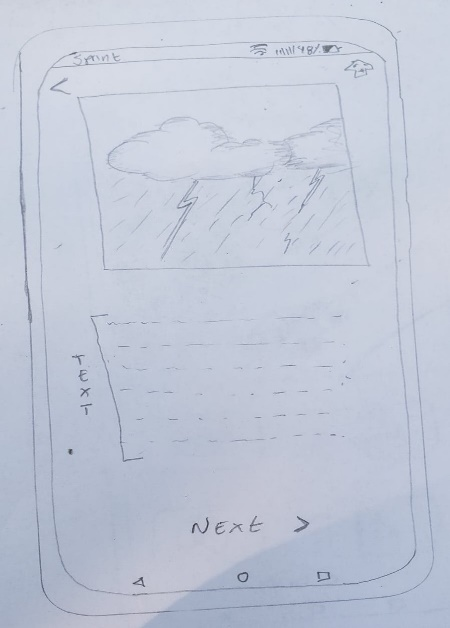 Sprint 98%
TEXT
Next >